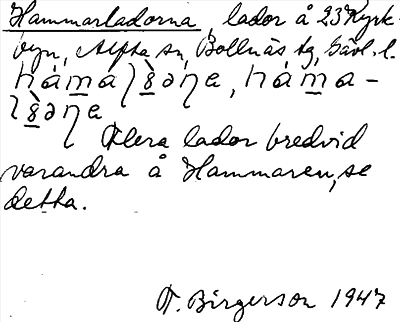 Hammarladorna, lador å 23 Kyrk-
byn, Alfta sn, Bollnäs tg, Gävl. l.
Flera lador bredvid
varandra å Hammaren, se
detta.
F. Birgerson 1947